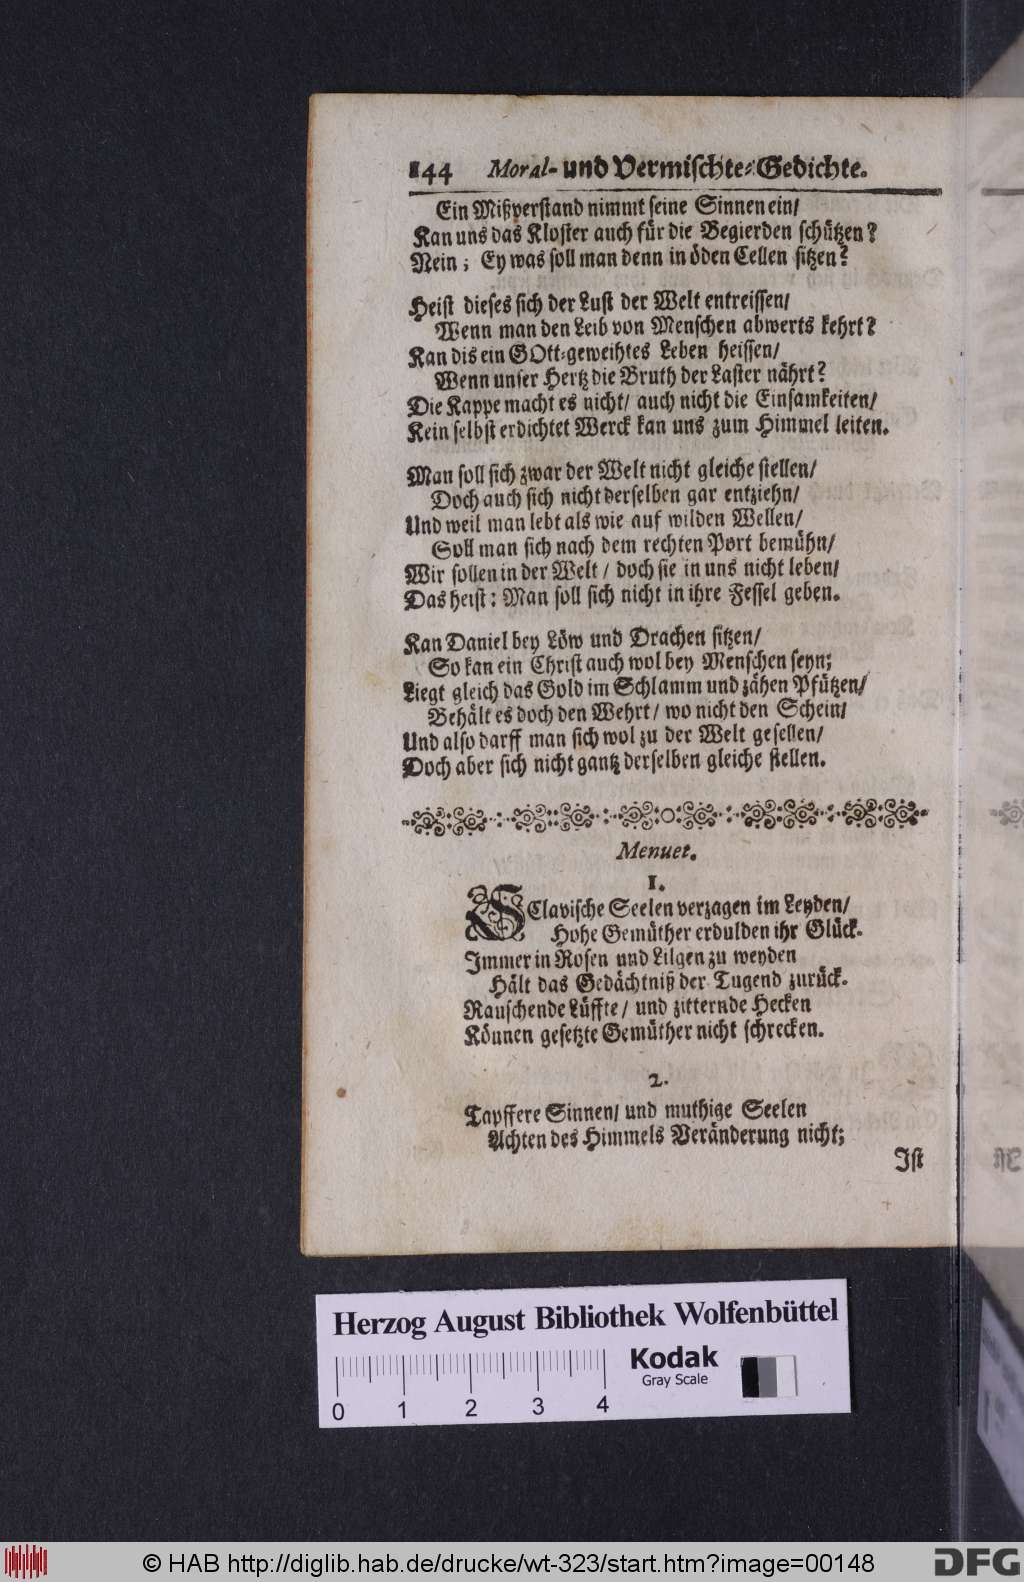 144 Moral- und Vermischte-Gedichte.
Ein Mißverstand nimmt seine Sinnen ein/
Kan uns das Kloster auch für die Begierden schützen?
Nein; Ey was soll man denn in öden Cellen sitzen?
Heist dieses sich der Lust der Welt entreissen/
Wenn man den Leib von Menschen abwerts kehrt?
Kan dis ein GOtt-geweihtes Leben heissen/
Wenn unser Hertz die Bruth der Laster nährt?
Die Kappe macht es nicht/ auch nicht die Einsamkeiten/
Kein selbst erdichtet Werck kan uns zum Himmel leiten.
Man soll sich zwar der Welt nicht gleiche stellen/
Doch auch sich nicht derselben gar entziehn/
Und weil man lebt als wie auf wilden Wellen/
Soll man sich nach dem rechten Port bemühn/
Wir sollen in der Welt / doch sie in uns nicht leben/
Das heist: Man soll sich nicht in ihre Fessel geben.
Kan Daniel bey Löw und Drachen sitzen/
So kan ein Christ auch wol bey Menschen seyn;
Liegt gleich das Gold im Schlamm und zähen Pfützen/
Behält es doch den Wehrt / wo nicht den Schein/
Und also darff man sich wol zu der Welt gesellen/
Doch aber sich nicht gantz derselben gleiche stellen.
Menuet.
1.
SClavische Seelen verzagen im Leyden/
Hohe Gemüther erdulden ihr Glück.
Immer in Rosen und Lilgen zu weyden
Hält das Gedächtniß der Tugend zurück.
Rauschende Lüffte / und zitternde Hecken
Können gesetzte Gemüther nicht schrecken.
2.
Tapffere Sinnen/ und muthige Seelen
Achten des Himmels Veränderung nicht;
Ist
Herzog August Bibliothek Wolfenbüttel
Kodak
Gray Scale
0 1 2 3 4
© HAB http://diglib.hab.de/drucke/wt-323/start.htm?image=00148
DFG